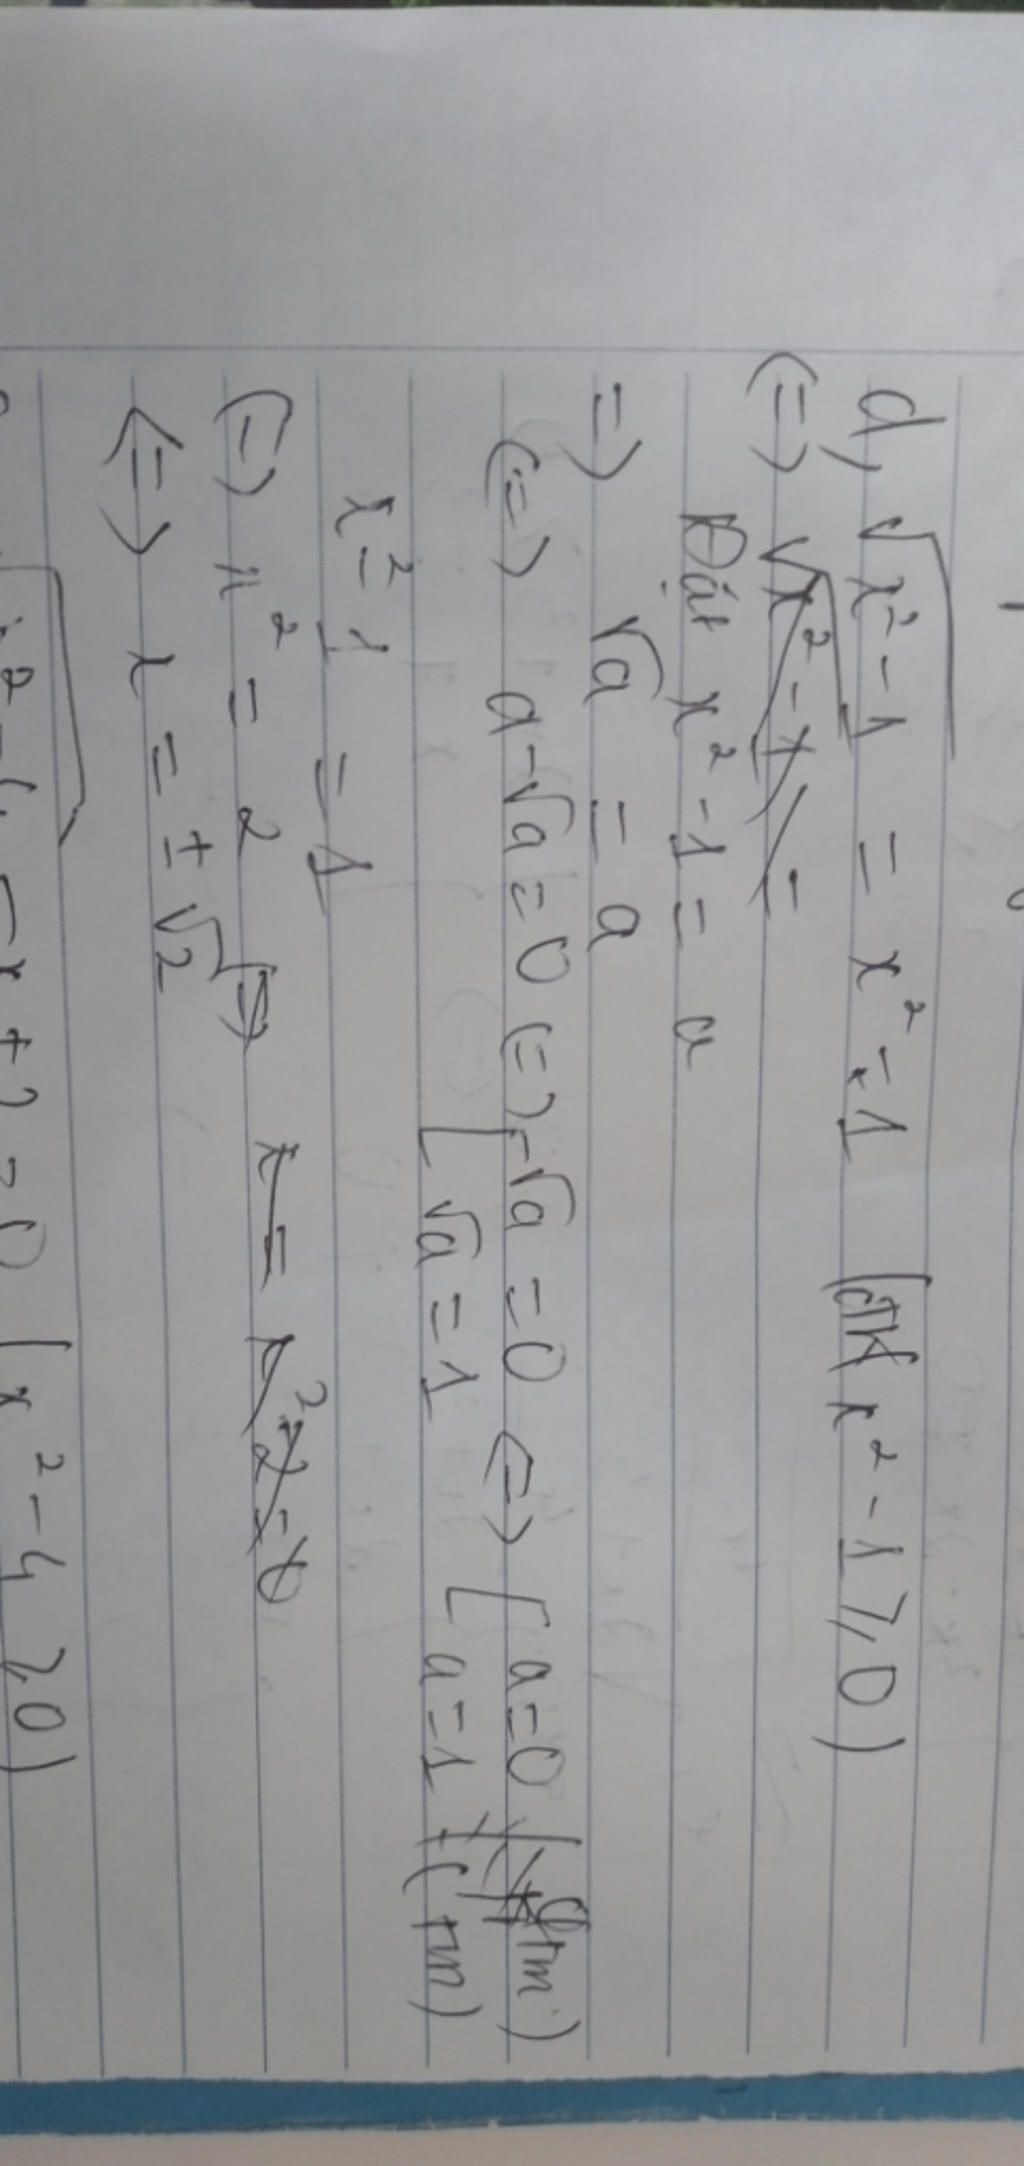 d, √x²-1 = x²-1 (đk x²-1 ≥ 0)
(=) √x²-1 =
Đặt x²-1 = a
=) √a = a
(=) a-√a = 0 (=) [ -√a = 0 <=> [ a=0 (tm)
√a = 1 a=1 (tm)
x²-1 = 1
(=) x² = 2 x = x²-2=0
<=> x = ±√2
-x+2=0 (x²-4 ≥0)